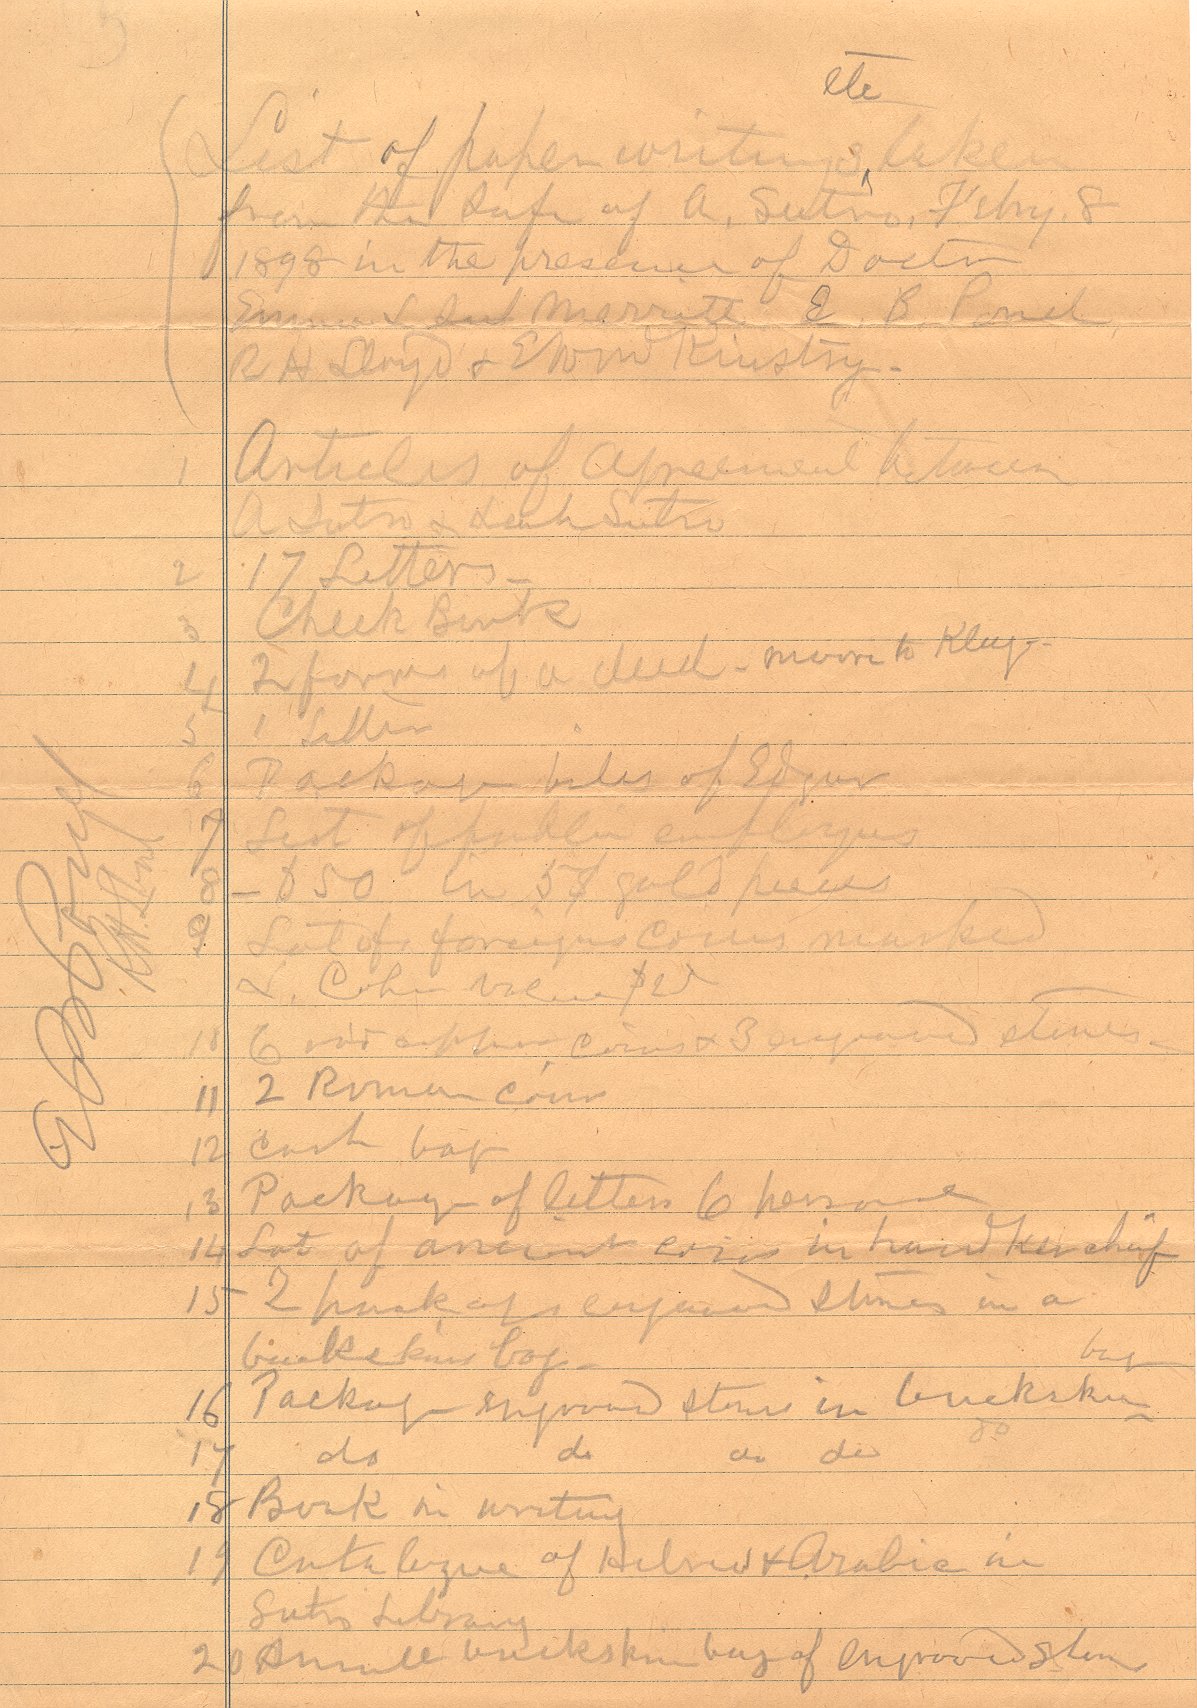 etc
List of paper writings, taken
from the safe of A. Sutro, Feby. 8
1898 in the presence of Doctor
Emma L Merritt E. B. Pond,
R H Lloyd & E W McKinstry-
1 Articles of agreement between
A Sutro & Leah Sutro
2 17 Letters-
3 Check Book
4 2 forms of a deed - Moore to Kluge-
5 1 Letter
6 Package bills of Edgar
7 List of public employees
8 - $50 in 5$ gold pieces
9 Lot of foreign coins marked
L. Cohn value
10 6 old copper coins & 3 engraved stones-
11 2 Roman coins
12 cash bag
13 Package of letters 6 personal
14 Lot of ancient coins in handkerchief
15 2 packages engraved stones in a
buckskin bag-
bag
16 Package engraved stones in buckskin
17 do do do do do
18 Book in writing
19 Catalogue of Hebrew & Arabic in
Sutro Library
20 Small buckskin bag of engraved stones
E B Pond
R.H. Lloyd